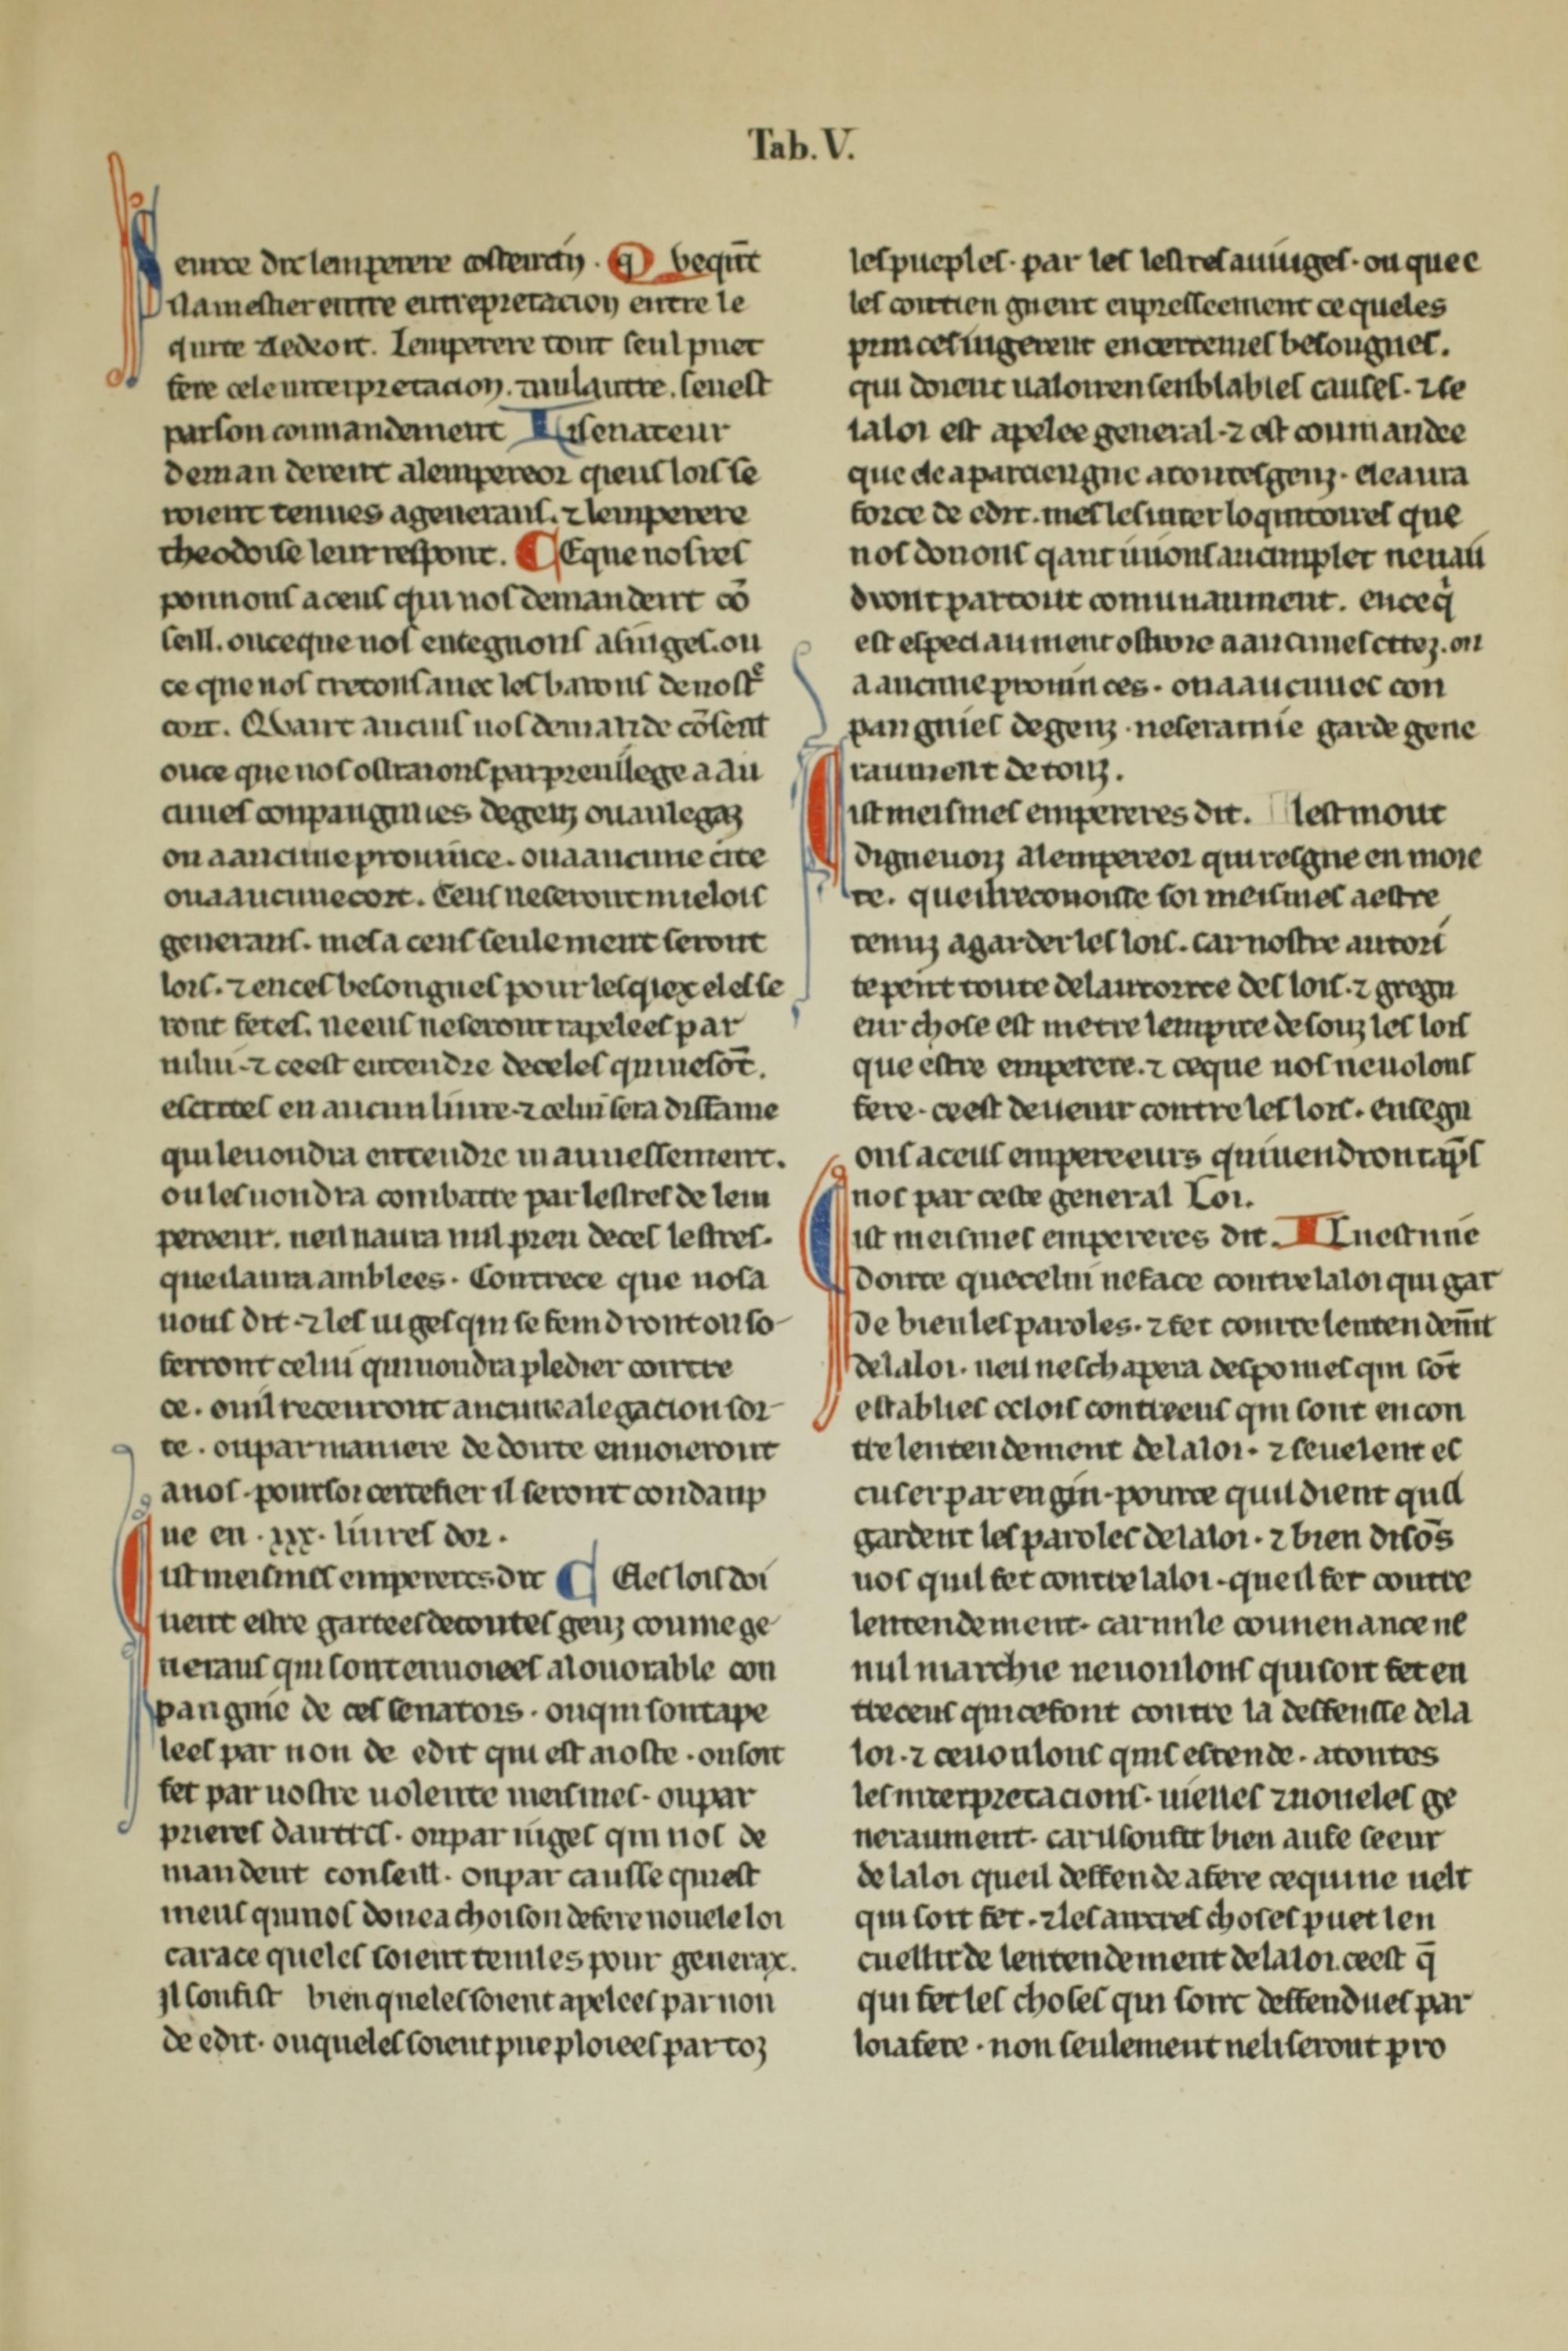 Tab. V.
eurce dit lemperere costentin. Q vequñt
il a mestier entre entrepretacion entre le
quite ⁊ ledroit. Lemperere tout seul puet
fere cele interpretacion. ⁊ nul autre. se nest
par son commandement Li senateur
deman derent a lempereor queus lois se
roient tenues a generaus. ⁊ lemperere
theodoise leur respont. CE que nos res
ponnons a ceus qui nos demandent cō
seill. ou ce que nos entegnons as iuges. ou
ce que nos tretons auec les barons de nostᵉ
cort. Qvant aucuns nos demande cōseill
ou ce que nos ostraions par preuilege a au
cunes conpangnies de genz ou au legaz
ou a aucune prouince. ou a aucune cite
ou a aucune cort. Ceus ne seront mie lois
generaus. mes a ceus seulement seront
lois. ⁊ en ces besongnes pour lesquex eles se
ront fetes. ne eus ne seront rapelees par
nului. ⁊ ce est entendre de celes qui ne sōt.
escrites en aucun liure. ⁊ celui sera diffame
qui le uoudra entendre mauuessement.
ou les uoudra combatre par lestres de lem
pereeur. ne il naura nul preu de ces lestres.
que il aura amblees. Contre ce que nos a
uons dit. ⁊ les iuges qui se feindront ou so
ferront celui qui uoudra pledier contre
ce. ou il receuront aucune alegacion sor
te. ou par maniere de doute enuoieront
a nos. pour soi certefier il seront condanp
ne en .xxx. liures dor.
ist meismes empereres dit C Aes lois doi
uent estre gartees de toutes genz coume ge
neraus qui sont enuoiees a lonorable con
pangnie de ces senators. ou qui sont ape
lees par non de edit qui est nostre. ou soit
fet par nostre uolente meismes. ou par
prieres dautres. ou par iuges qui nos de
mandent conseill. ou par causse qui est
meus qui nos done achoison de fere nouele loi
car a ce queles soient tenues pour generax.
Il soufist bien queles soient apelees par non
de edit. ou queles soient pueploiees par toz
les pueples. par les lestres au iuges. ou que e
les contien gnent expresseement ce queles
princes iugerent en certeines besougnes.
qui doient ualoir en senblables causes. ⁊ se
la loi est apelee general. ⁊ est coum andee
que ele aparciengne a toutes genz. ele aura
force de edit. mes les inter loquitoires que
nos donons qant iiuons au cimplet ne uau
dront partout comunaument. en ce q̇
est especiaument ostroie a aucunes citez. ou
a aucune prouin ces. ou a aucunes con
pangnies de genz. ne sera mie garde gene
raument de touz.
ist meismes empereres dit. lest mout
digne uoiz a lempereor qui resgne en moie
te. que il reconoisse soi meismes a estre
tenuz a garder les lois. car nostre autori
te pent toute de lautorite des lois. ⁊ gregn
eur chose est metre lempire de souz les lois
que estre emperere. ⁊ ce que nos ne uolons
fere. ce est de uenir contre les lois. ensegn
ons a ceus empereeurs qui uendront ap̄s
nos par ceste general Loi.
ist meismes empereres dit. Il nest nne
doute que celui ne face contre la loi qui gar
de bien les paroles. ⁊ fet contre lenten demīt
de la loi. ne il neschapera des poines qui sōt
establies es lois contre eus qui sont encon
tre lentendement de la loi. ⁊ se uelent es
cuser par engin. pour ce quil dient quil
gardent les paroles de la loi. ⁊ bien disōs
nos quil fet contre la loi. que il fet contre
lentendement. car nule couuenance ne
nul marchie ne uoulons qui soit fet en
tre ceus qui ce font contre la deffensse de la
loi. ⁊ ce uoulons quis estende. a toutes
les interpretacions. uielles ⁊ noueles ge
neraument. car il soufit bien au fe seeur
de la loi que il deffende a fere ce qui ne uelt
qui soit fet. ⁊ les autres choses puet len
cuellir de lentendement de la loi. ce est q̄
qui fet les choses qui sont deffendues par
loi a fere. non seulement ne li seront pro